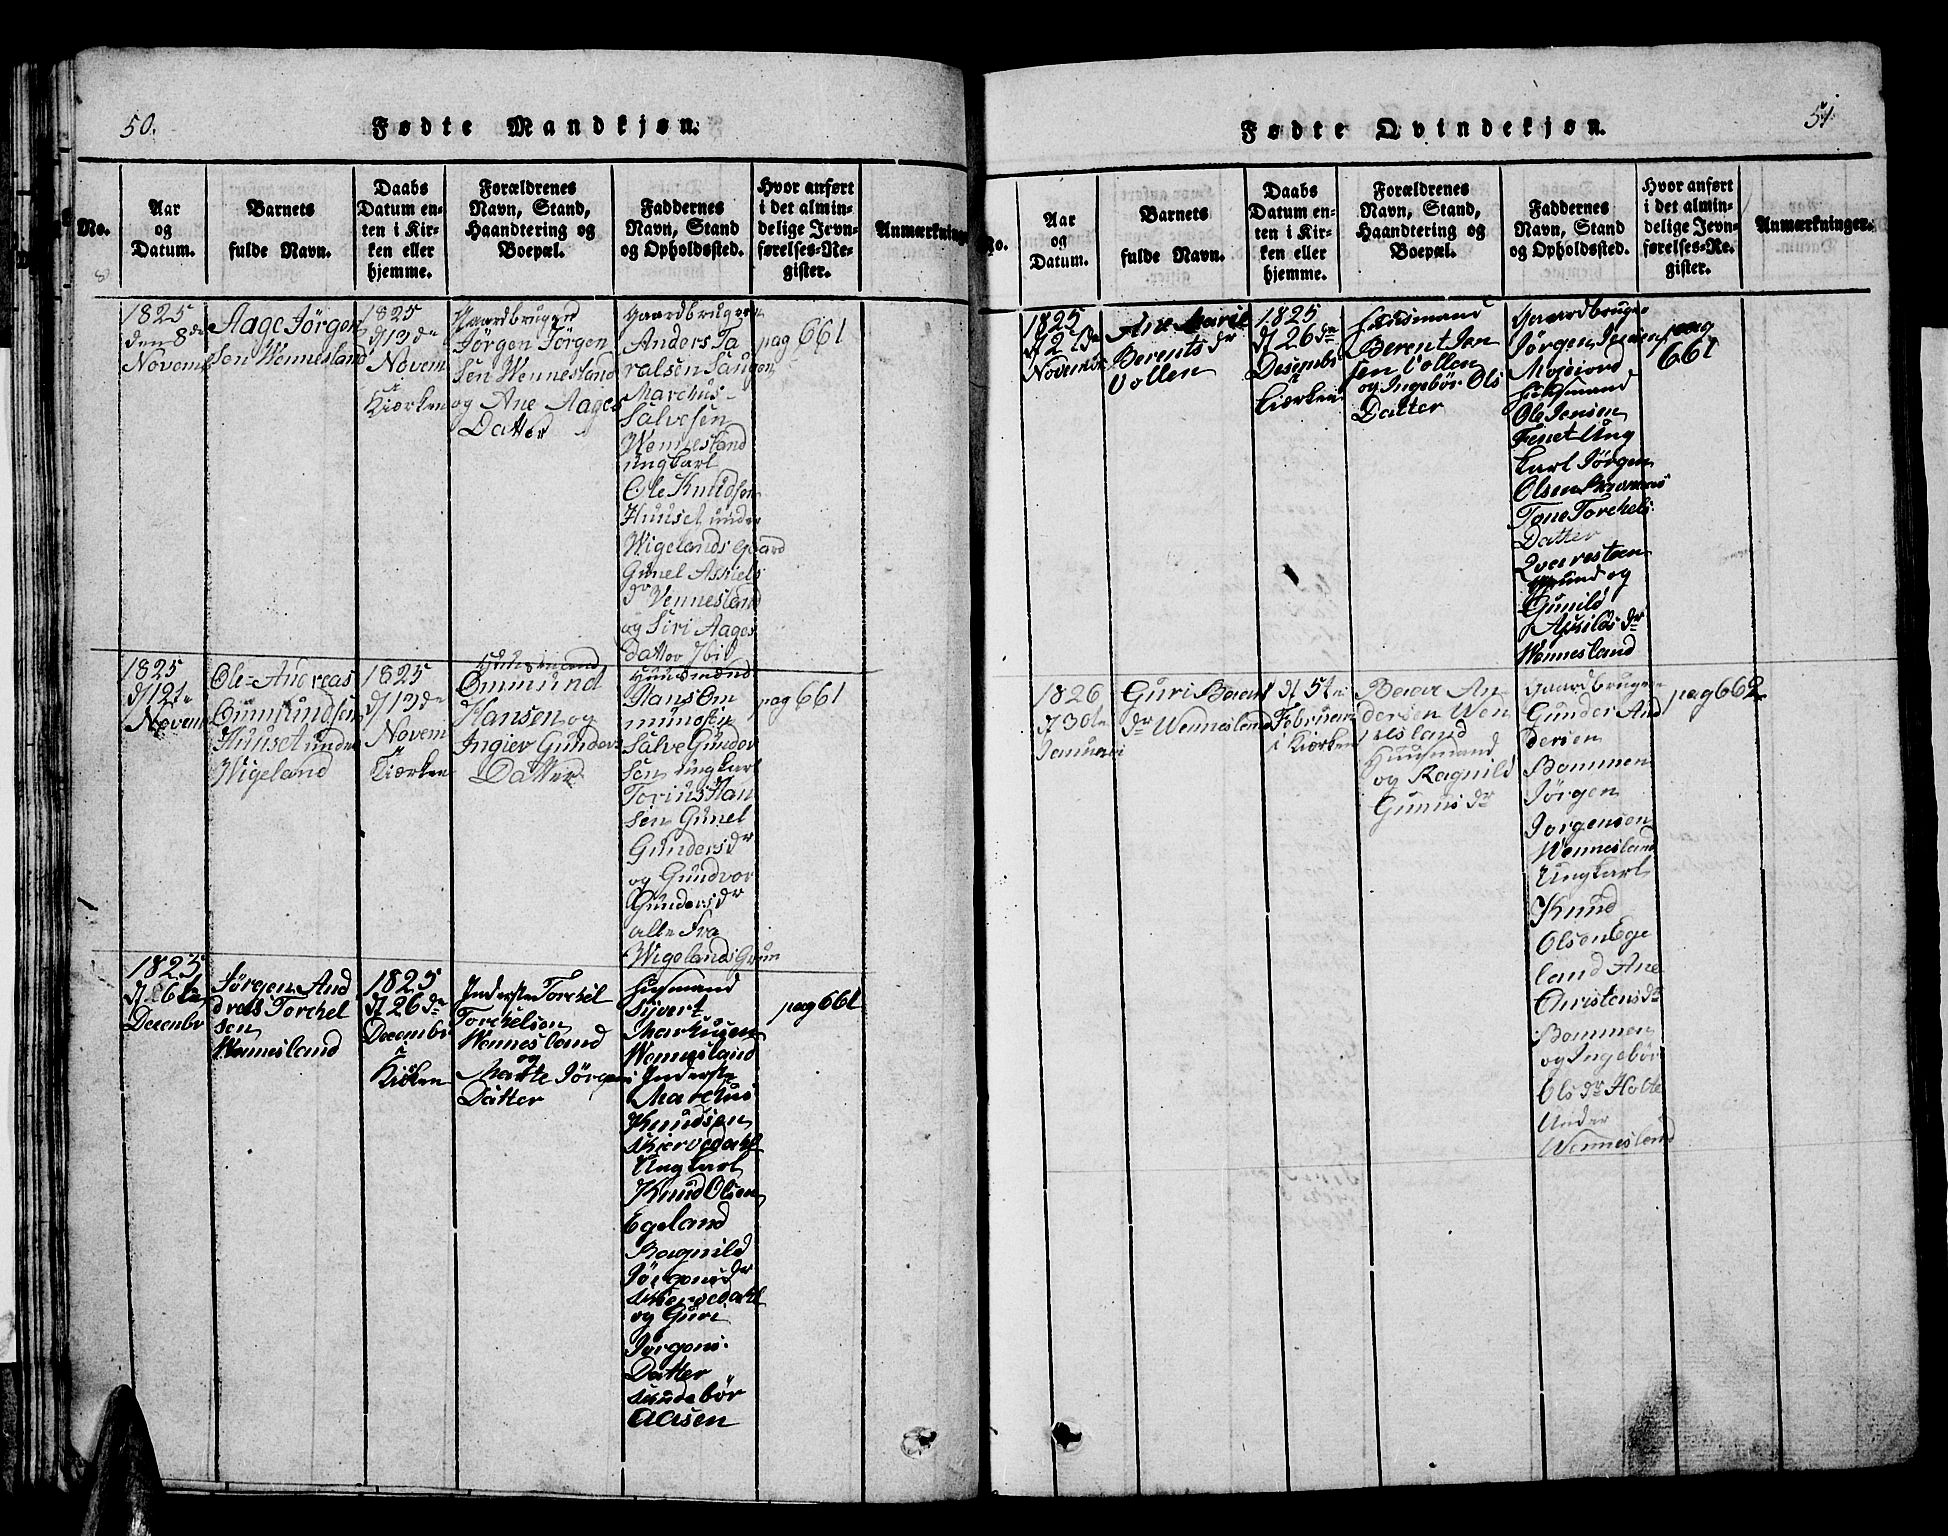 50.
Fødte Mandkjøn.
No.
Aar
og
Datum.
Barnets
fulde Navn.
Daabs
Datum en-
ten i Kir-
ken eller
hjemme.
Forældrenes
Navn, Stand,
Haandtering og
Boepæl.
Faddernes
Navn, Stand
og Opholdssted.
Hvor anført
i det almin-
delige Jevn-
førelses-Re-
gister.
Anmærkning
8
1825
den 8de
Novemb
Aage Jörgen
sen Wennesland
1825
d 13de
Novem
i
Kiørken
Gaardbruger
Jörgen Jörgen
sen Wennesland
og Ane Aages
Datter
Gaardbruger
Anders Ta
ralsen Saugen
Marchus
Salvesen
Wennesland
ungkarl
Ole Knudsen
Huuset under
Wigelands Gaard
Gunel Askiels
dr Vennesland
og Siri Aages
datter ibid
pag 661
1825
d 12te
Novem
Ole Andreas
Ommundsen
Huuset under
Wigeland
1825
d 13de
Novem
i
Kiørken
Huusmand
Ommund
Hansen og
Ingier Gunders
Datter
Huusmænd
Hans Om
mundsen
Salve Gunder
sen ungkarl
Torius Han
sen Gunel
Gundersdr
og Gundvor
Gundersdr
alle fra
Wigelands Grun
pag 661
1825
d 16te
Decembr
Jørgen And
dreas Torchel
sen
Wennesland
1825
d 26de
Decembr
i
Kiøken
Inderste Torchel
Torchelsen
Wennesland
og
Marte Jörgens
Datter
Husmand
Syvert
Markusen
Wennesland
Inderste
Marchus
Knudsen
Skiervedahl
Ungkarl
Knud Olsen
Egeland
Ragnild
Jörgensdr
Skiervedahl
og Guri
Jörgens
Datter
Aasen
pag 661
51.
Fødte Qvindekjøn.
No.
Aar
og
Datum.
Barnets
fulde Navn.
Daabs
Datum en-
ten i Kir-
ken eller
hjemme.
Forældrenes
Navn, Stand,
Haandtering og
Boepæl.
Faddernes
Navn, Stand
og Opholdssted.
Hvor anført
i det almin-
delige Jevn-
førelses-Re-
gister.
Anmærkninger.
1825
d 21de
Novembr
Ane Marie
Berents dr
Vollen
1825
d 26de
Desembr
i
Kiørken
Husmand
Berent Jen
sen Vollen
og Ingebör Ols
Datter
Gaardbruger
Jörgen Jensen
Moseiord
Husmand
Ole Jensen
Ung
karl Jörgen
Olsen
Tone Torchels
Datter
Qvaresteen
Grund og
Gunild
Aysilds dr
Wennesland
pag
661
1826
d 30te
Januari
Guri Baars
dr Wennesland
d 5te
Februari
i Kiørken
Baar An
dersen Wen
nesland
Huusmand
og Ragnild
Gunus dr
Gaardbruger
Gunder And
dersen
Bommen
Jörgen
Jorgensen
Wennesland
Ungkarl
Knud
Olsen Ege
land Ane
Christens dr
Bommen
og Ingebör
Ols dr Holte
Under
Wennesland
pag 662